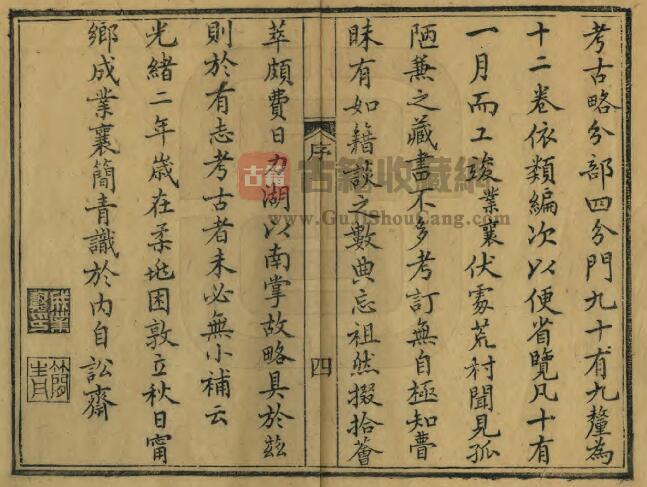 考古略分部四分門九十有九釐為
十二卷依類編次以便省覽凡十有
一月而工竣業襄伏處荒村聞見孤
陋兼之藏書不多考訂無自極知瞢
昧有如籍談之數典忘祖然掇拾薈
序
四
萃頗費日力湖以南掌故略具於茲
則於有志考古者未必無小補云
光緒二年歲在柔兆困敦立秋日甯
鄉成業襄簡青識於內自訟齋
古籍
古籍收藏網
www.GuJiShouCang.com